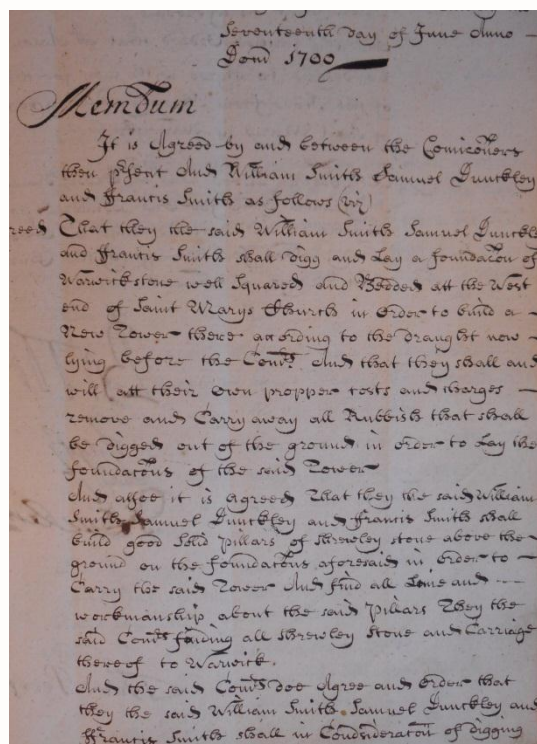 Seventeenth Day of June Anno
Dom̄ 1700
Memdum
It is Agreed by and between the Comicōners
then p̱sent And William Smith Samuel Dunckley
and Ffrancis Smith as follows (viz)
reed That they the said William Smith Samuel Dunckley
and Ffrancis Smith shall digg and Lay a foundacōn of
Warwick stone well Squared and Bedded att the West
end of Saint Marys Church in order to build a
New Tower there according to the draught now
lying before the Com̄rs And that they shall and
will att their own propper costs and charges
remove and Carry away all Rubbish that shall
be digged out of the ground in order to Lay the
foundacōns of the said Tower
And alsoe it is agreed That they the said William
Smith Samuel Dunckley and Ffrancis Smith shall
build good Solid pillars of Shrewley stone above the
ground on the foundacōns aforesaid in order to
Carry the said Tower And find all Lime and
workmanship about the said pillars They the
said Com̄rs finding all Shrewley stone and Carriage
thereof to Warwick.
And the said Com̄rs doe Agree and Order that
they the said William Smith Samuel Dunckley and
Ffrancis Smith shall in Consideracōn of digging